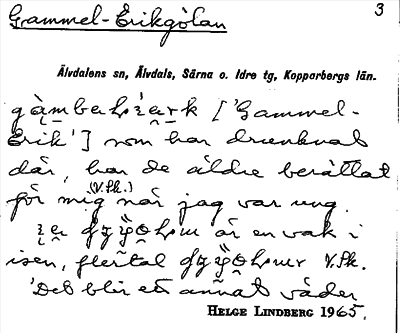 Gammel-Erikgölan
3
Älvdalens sn, Älvdals, Särna o. Idre tg, Kopparbergs län.
['Gammel-
Erik'] som har drunknat
där, har de äldre berättat
(V. Sk.)
för mig när jag var ung.
är en vak i
isen, flertal V. Sk.
'Det blir ett annat väder
HELGE LINDBERG 1965.